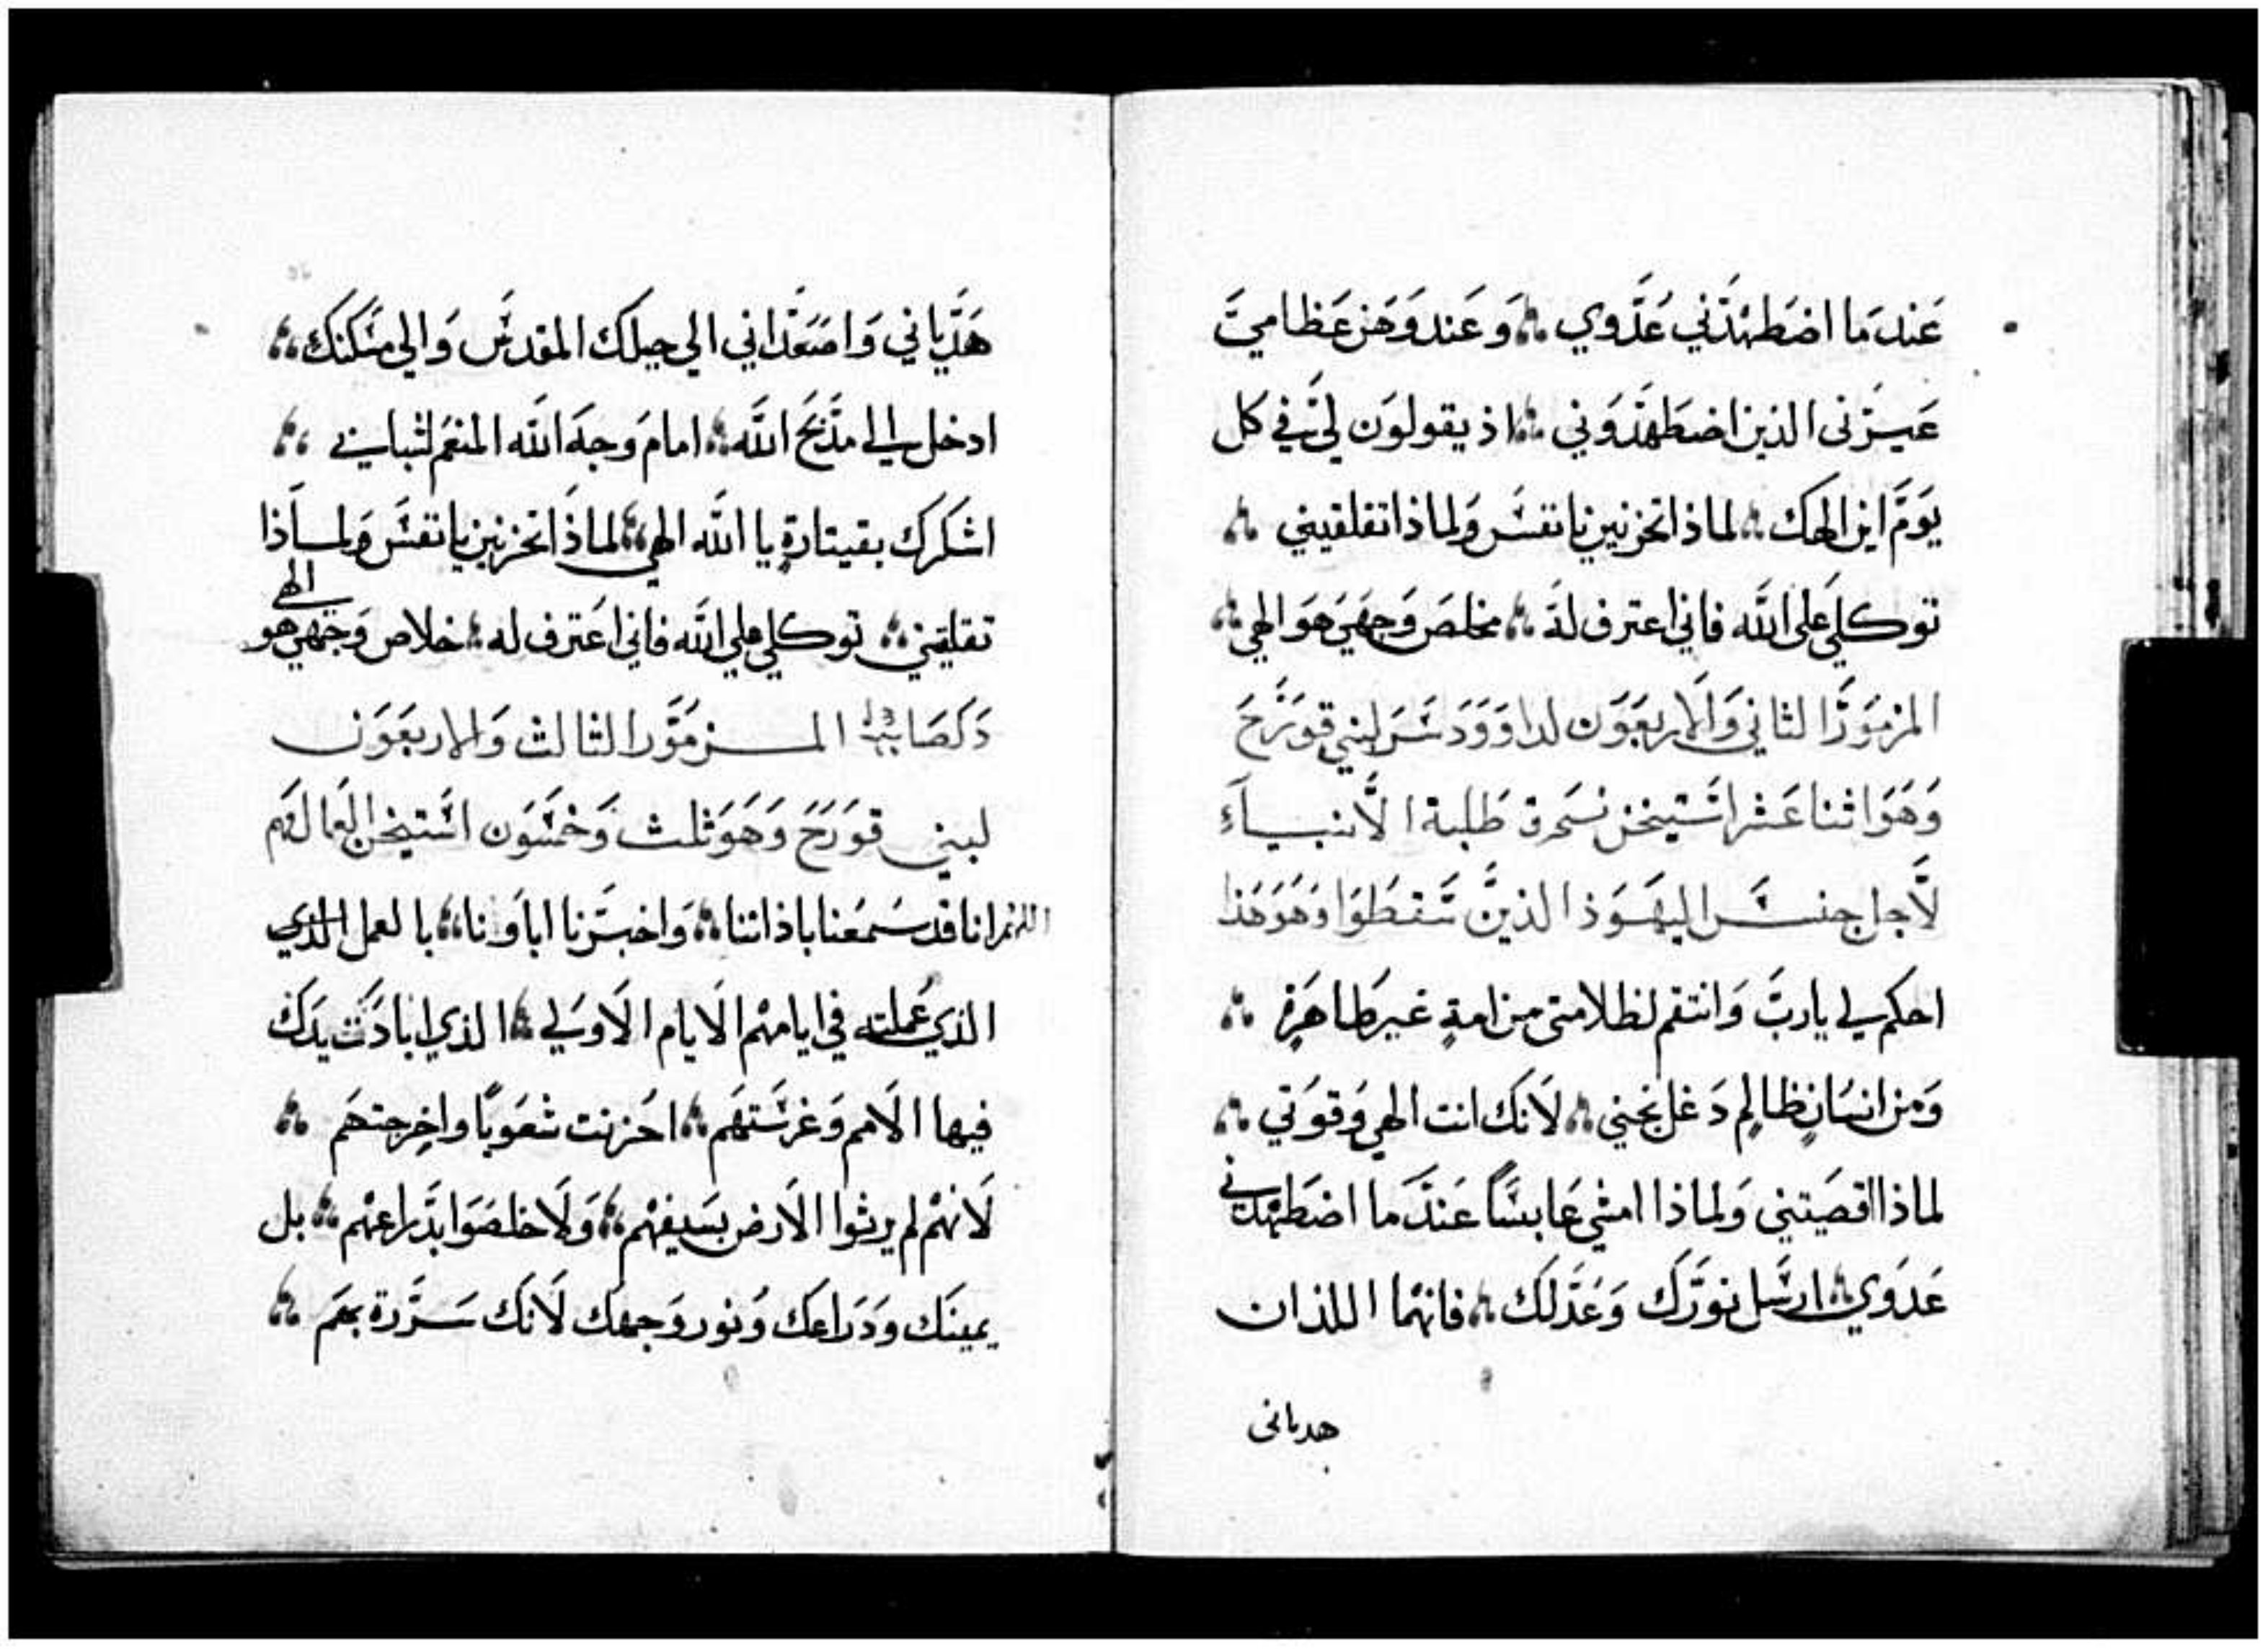 عَندَما اضطهَدَني عَدَوي ۞ وَعَند وَهَز عَظامي
عَيرَني الذين اضطَهدَوني ۞ اذ يقولوَن لي في كل
يوَمَ اين الهك ۞ لماذا تحزنين يا نفس وَلماذا تقلقيني ۞
توكلي عَلى الله فاني اعترف لهَ ۞ مخلصَ وَجهَي هَوَ الهي ۞
المزمَوَر الثاني وَالاربعَوَن لداوَوَد لبني قوَرَح
وَهَوَ اثنا عَشر استيخن طَلبة الانبياء
لاجل جنس اليهَوَذ الذين سَقطَوَا وَهَوَ هَذا
احكم لي يارب وَانتقم لظلامتي من امةٍ غير طاهَرةٍ ۞
وَمن انسَانٍ ظالمٍ دَغل نجني ۞ لاَنك انت الهي وَقوَتي ۞
لماذا اقصَيتني وَلماذا امشي عَابسًا عَندَما اضطَهَدني
عَدَوي ۞ ارسَل نوَرَك وَعَدَلك ۞ فانهَما اللذان
هدياني
هَدَياني وَاصَعَدَاني الي جبلك المقدس وَالي مسَكنك ۞
ادخل الي مذَبح الله ۞ امام وَجهَ الله المنعَم لشبابي ۞
اشكرك بقيتارةٍ يا الله الهي ۞ لماذَا تحزنين يا نفسَ وَلماذا
تقلقيني ۞ توكلي علي الله فاني اعَترف له ۞ خلاص وَجَهي هو الهي
المزمَوَر الثالث وَالاربعَوَن
لبني قوَرَح وَهَوَ ثلث وَخمسَوَن استيخن
اللهم اننا قد سَمعَنا باذاننا ۞ وَاخبرَنا اباوَنا ۞ بالعمل الذي
الذي عَملته في ايامهَم الاَيام الاَوَلي ۞ الذي ابادَت يدَك
فيها الاَمم وَغرسَتهَم ۞ احَزنت شعَوَبًا وَاخرجتهَم ۞
لاَنهَم لم يرثوا الاَرض بسَيفهَم ۞ وَلاَ خلصَوَا بذَراعهَم ۞ بل
يمينَك وَذَراعَك وَنور وَجهَك لاَنك سَررَت بهَم ۞